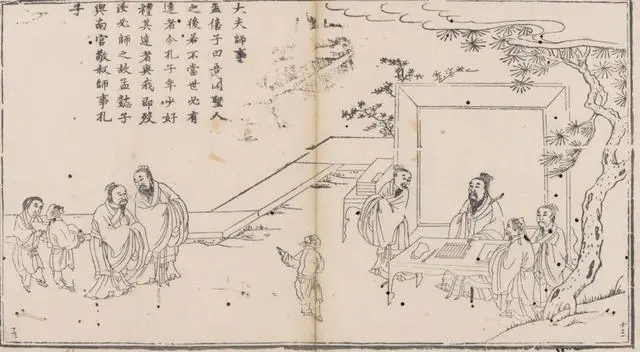 大夫師事
孟僖子曰吾聞聖人
之後若不當世必有
達者今孔子年少好
禮其達者與我即殁
汝必師之故孟懿子
與南宮敬叔師事孔
子